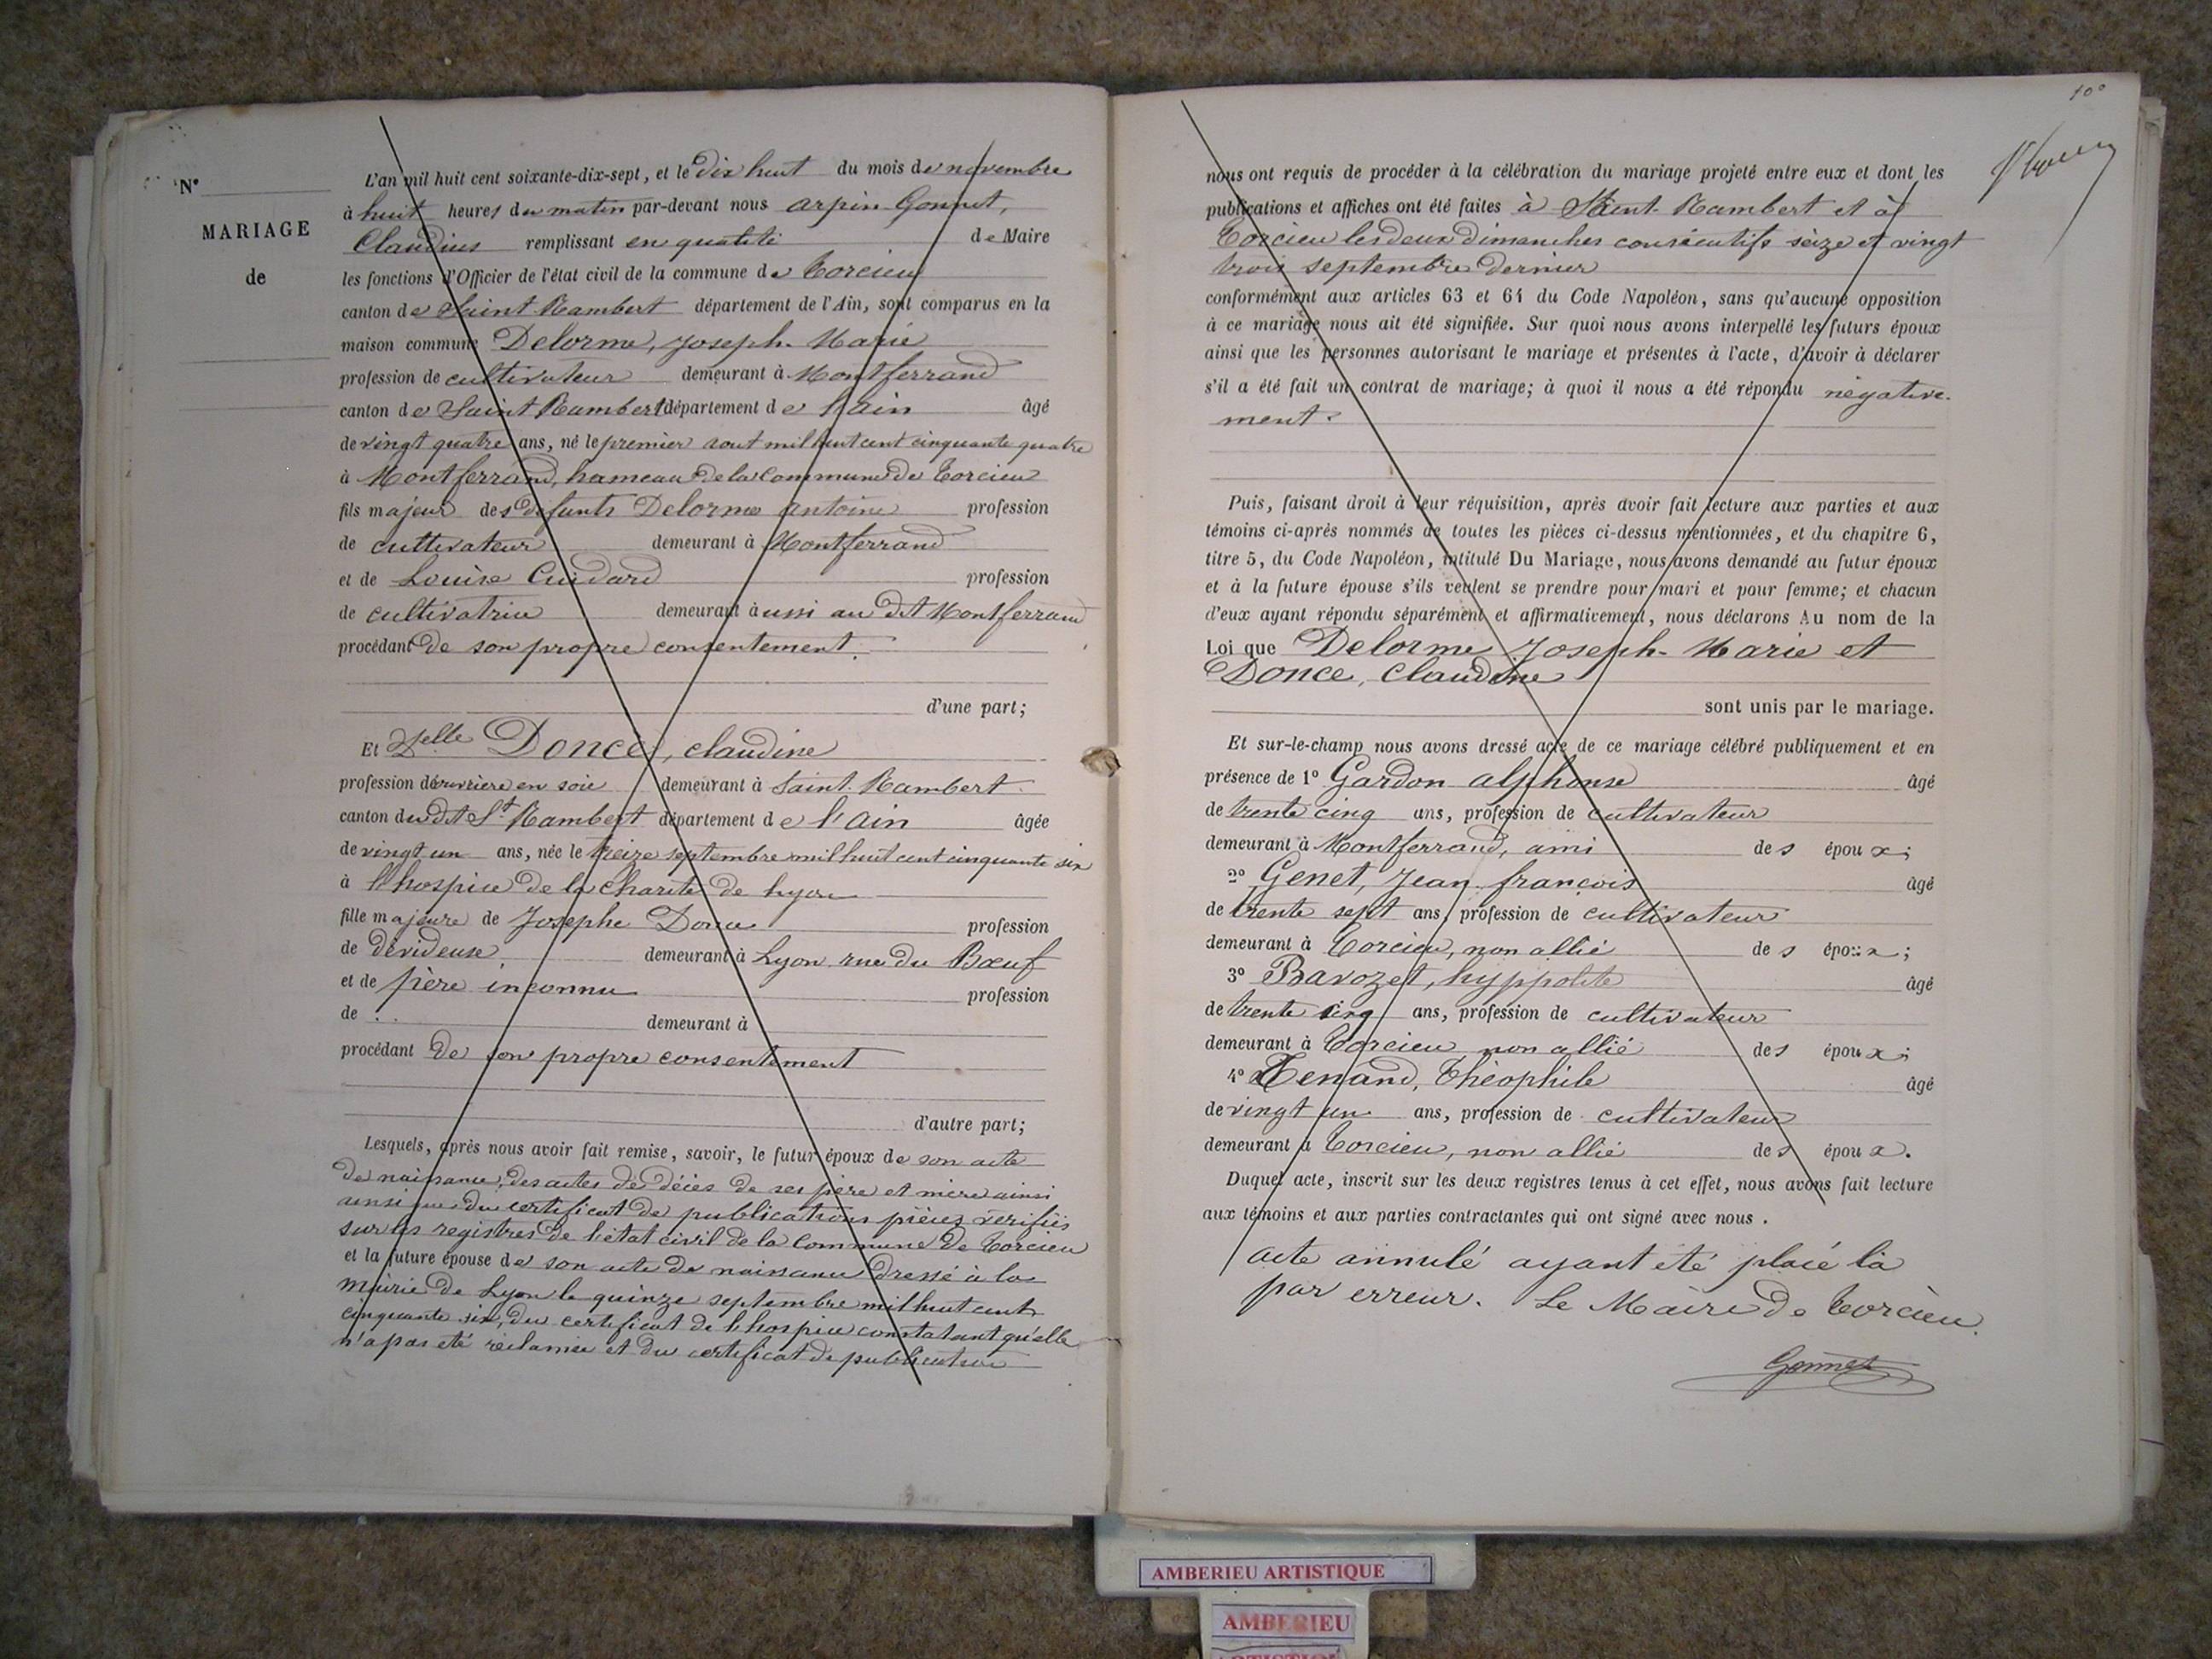 N°
MARIAGE
de
L'an mil huit cent soixante-dix-sept, et le dix huit du mois de novembre
à huit heures du matin par-devant nous arpin Gonnet,
Claudius remplissant en qualité de Maire
les fonctions d'Officier de l'état civil de la commune de Torcieu
canton de Saint Rambert département de l'Ain, sont comparus en la
maison commune Delorme, Joseph-Marie
profession de cultivateur demeurant à Montferrand
canton de Saint Rambert département de l'ain âgé
de vingt quatre ans, né le premier aout mil huit cent cinquante quatre
à Montferrand, hameau de la commune de Torcieu
fils majeur des défunts Delorme antoine profession
de cultivateur demeurant à Montferrand
et de Louise Cuidard profession
de cultivatrice demeurant aussi au dit Montferrand
procédant de son propre consentement.
d'une part;
Et Delle Donce, claudine
profession d'ouvrière en soie demeurant à Saint-Rambert
canton dudit St Rambert département de l'ain âgée
de vingt un ans, née le treize septembre mil huit cent cinquante six
à l'hospice de la charité de Lyon
fille majeure de Josephe Donce profession
de dévideuse demeurant à Lyon rue du Bœuf
et de père inconnu profession
de .. demeurant à
procédant de son propre consentement
d'autre part;
Lesquels, après nous avoir fait remise, savoir, le futur époux de son acte
de naissance, des actes de décès de ses père et mère ainsi
ainsi que du certificat de publications pièces vérifiés
sur les registres de l'état civil de la commune de Torcieu
et la future épouse de son acte de naissance dressé à la
mairie de Lyon le quinze septembre mil huit cent
cinquante six, du certificat de l'hospice constatant qu'elle
n'a pas été réclamée et du certificat de publication
10°
nous ont requis de procéder à la célébration du mariage projeté entre eux et dont les
publications et affiches ont été faites à Saint-Rambert et à
Torcieu les deux dimanches consécutifs seize et vingt
trois septembre dernier
conformément aux articles 63 et 64 du Code Napoléon, sans qu'aucune opposition
à ce mariage nous ait été signifiée. Sur quoi nous avons interpellé les futurs époux
ainsi que les personnes autorisant le mariage et présentes à l'acte, d'avoir à déclarer
s'il a été fait un contrat de mariage; à quoi il nous a été répondu négative-
ment.
Puis, faisant droit à leur réquisition, après avoir fait lecture aux parties et aux
témoins ci-après nommés de toutes les pièces ci-dessus mentionnées, et du chapitre 6,
titre 5, du Code Napoléon, intitulé Du Mariage, nous avons demandé au futur époux
et à la future épouse s'ils veulent se prendre pour mari et pour femme; et chacun
d'eux ayant répondu séparément et affirmativement, nous déclarons Au nom de la
Loi que Delorme Joseph-Marie et
Donce, Claudine
sont unis par le mariage.
Et sur-le-champ nous avons dressé acte de ce mariage célébré publiquement et en
présence de 1° Gardon alphonse âgé
de trente cinq ans, profession de cultivateur
demeurant à Montferrand, ami des époux;
2° Genet, Jean françois âgé
de trente sept ans, profession de cultivateur
demeurant à Torcieu, non allié des époux;
3° Bavozet, hyppolite âgé
de trente cinq ans, profession de cultivateur
demeurant à Torcieu, non allié des époux;
4° Tenand, Théophile âgé
de vingt un ans, profession de cultivateur
demeurant à Torcieu, non allié des époux.
Duquel acte, inscrit sur les deux registres tenus à cet effet, nous avons fait lecture
aux témoins et aux parties contractantes qui ont signé avec nous.
acte annulé ayant été placé là
par erreur. Le Maire de Torcieu.
Gonnet
AMBERIEU ARTISTIQUE
AMBERIEU
ARTISTIQUE